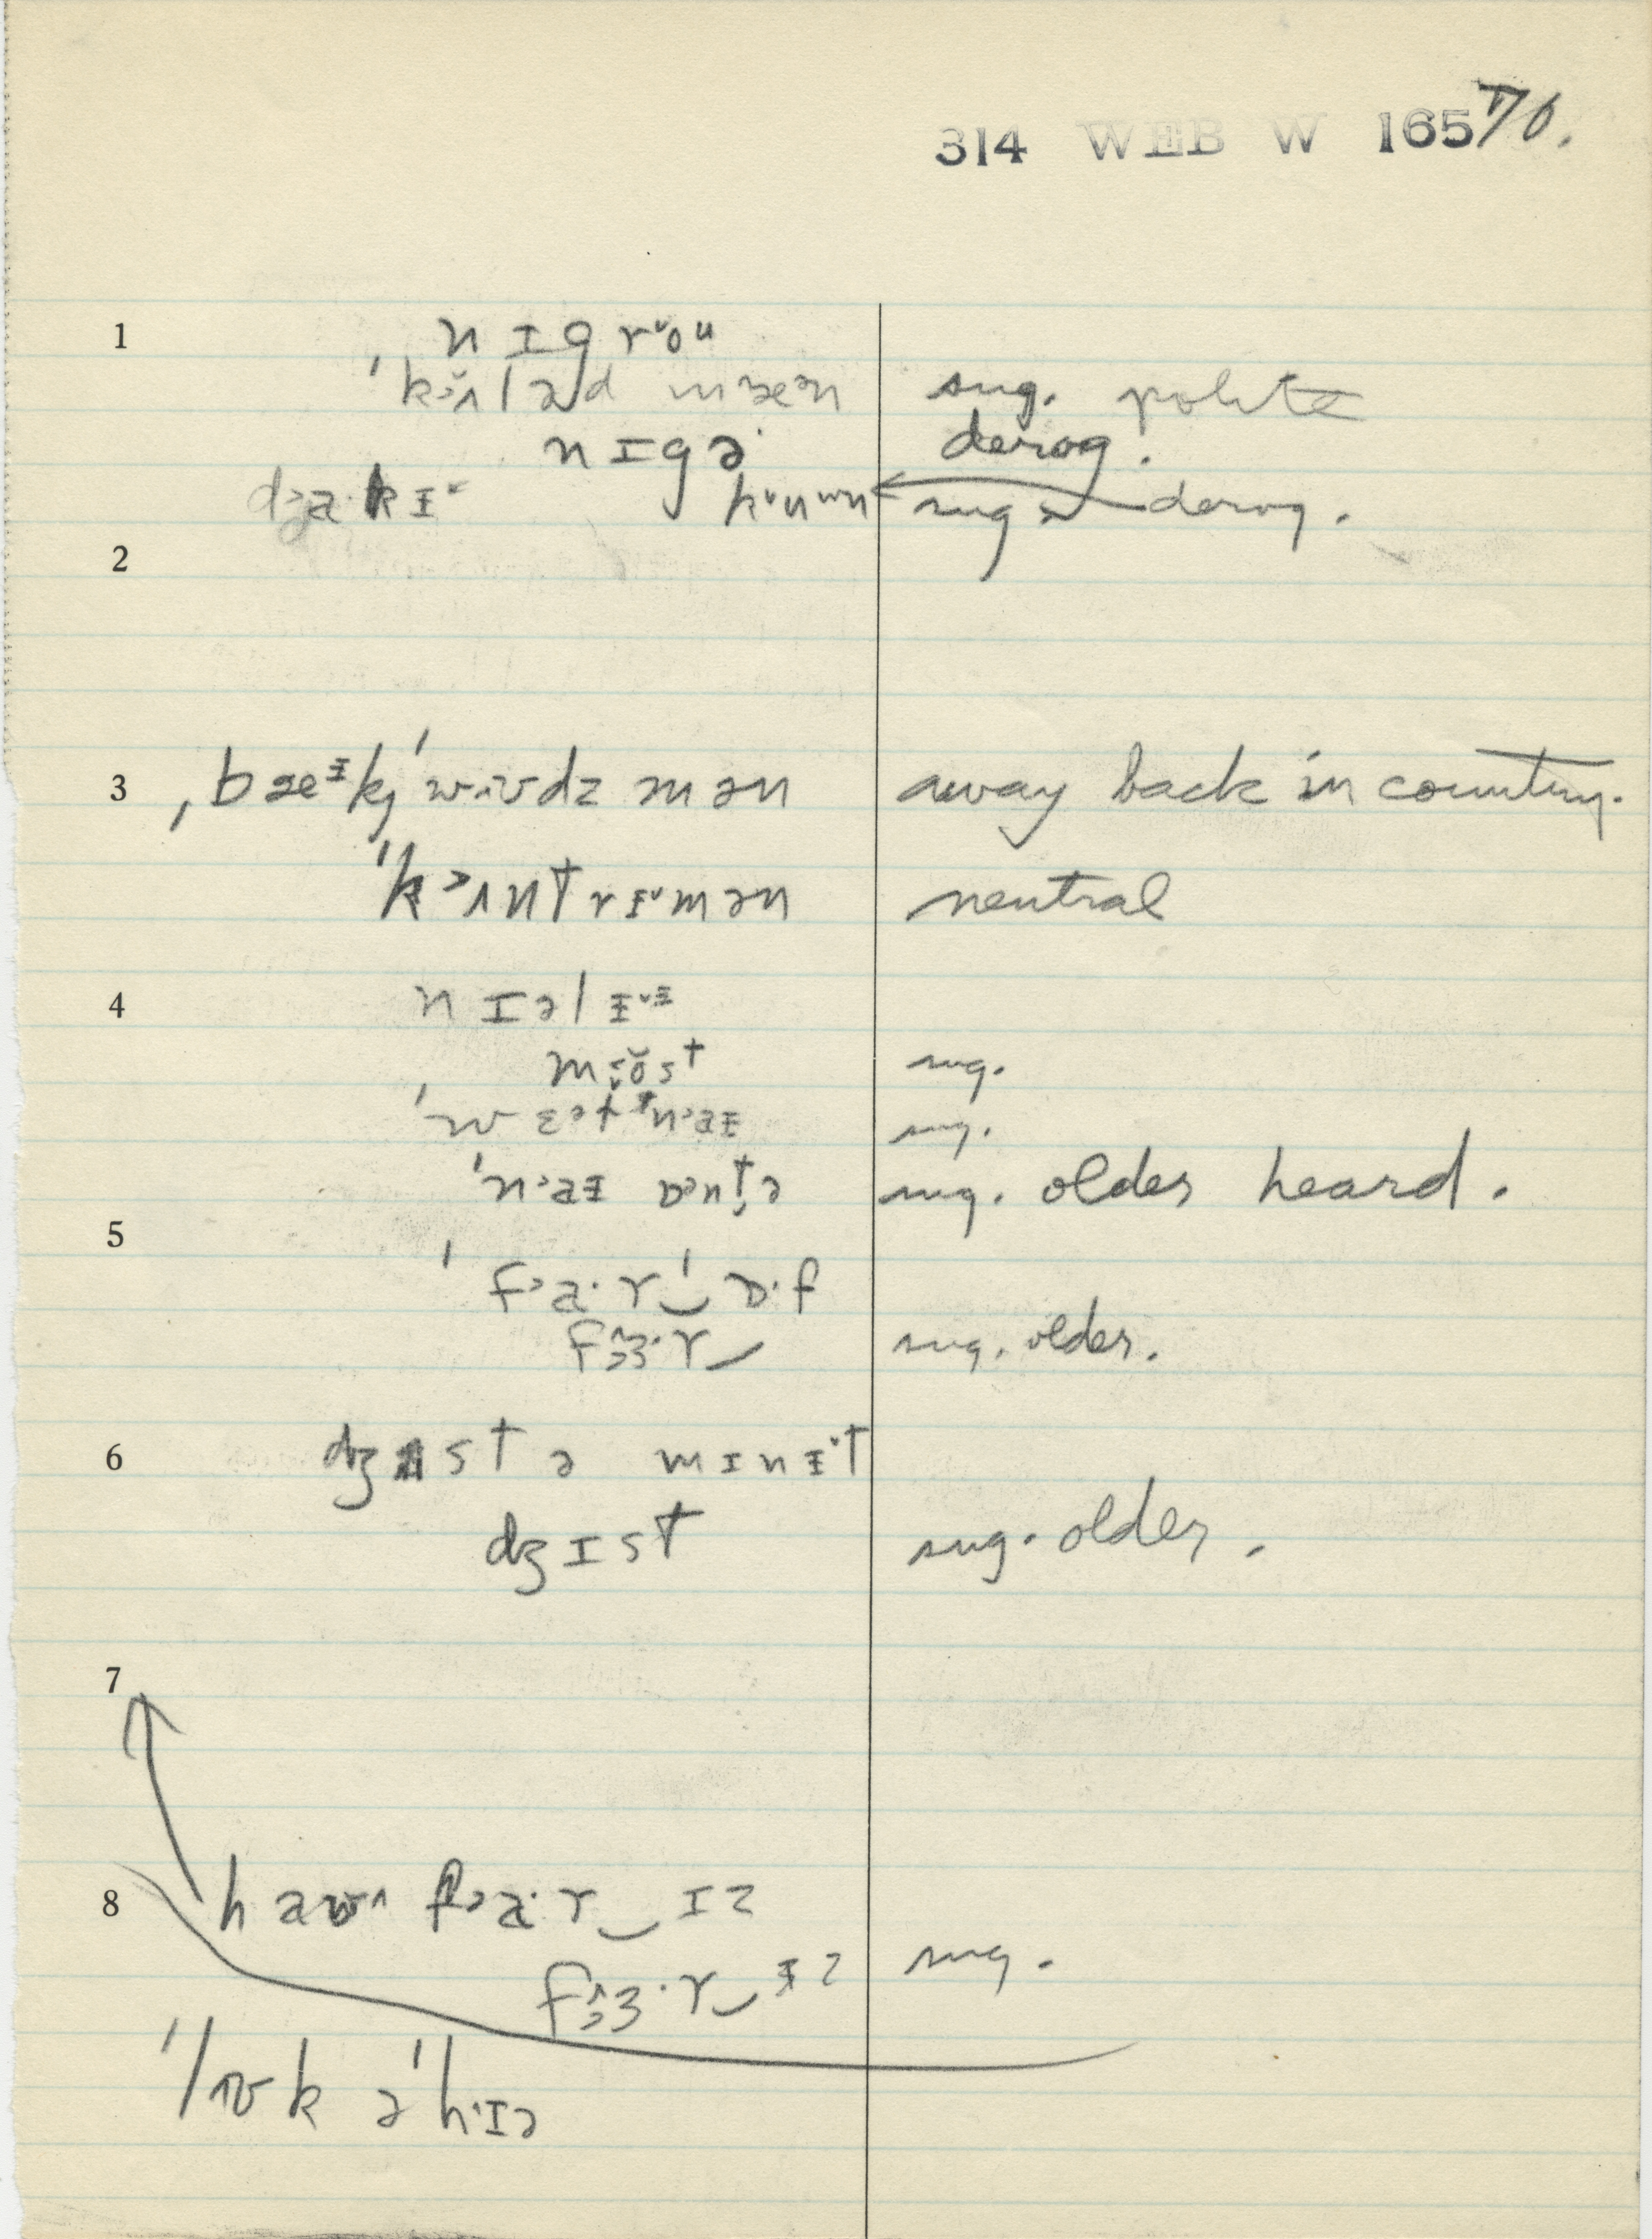 314 WEB W 165 70.
1 nɪgrˇoᵘ
ˈk˃ʌ̆ləd mæən sug. polite
nɪgə· derog.
dʒa·kɨˇ kˇuʷn sug. derog.
2
3 ˌbæᵻk̡ˈwʊdz mən away back in country.
ˈk˃ʌntrɨˇmən neutral
4 nɪəlɨˇᵻ
m öst sug.
ˈwɛət n˃aɨ sug.
ˈn˃aɨ ɒntə sug. older heard.
5
ˈf˃a·r‿ˈɒ·f
fɜ·r‿ sug. older.
6 dʒʌst ə mɪnɨˇt
dʒɪst sug. older.
7
8 haʊ^ f˃a·r‿ɪz
fɜ·r‿ɨz sug.
ˈlʊk əˈh·ɪə